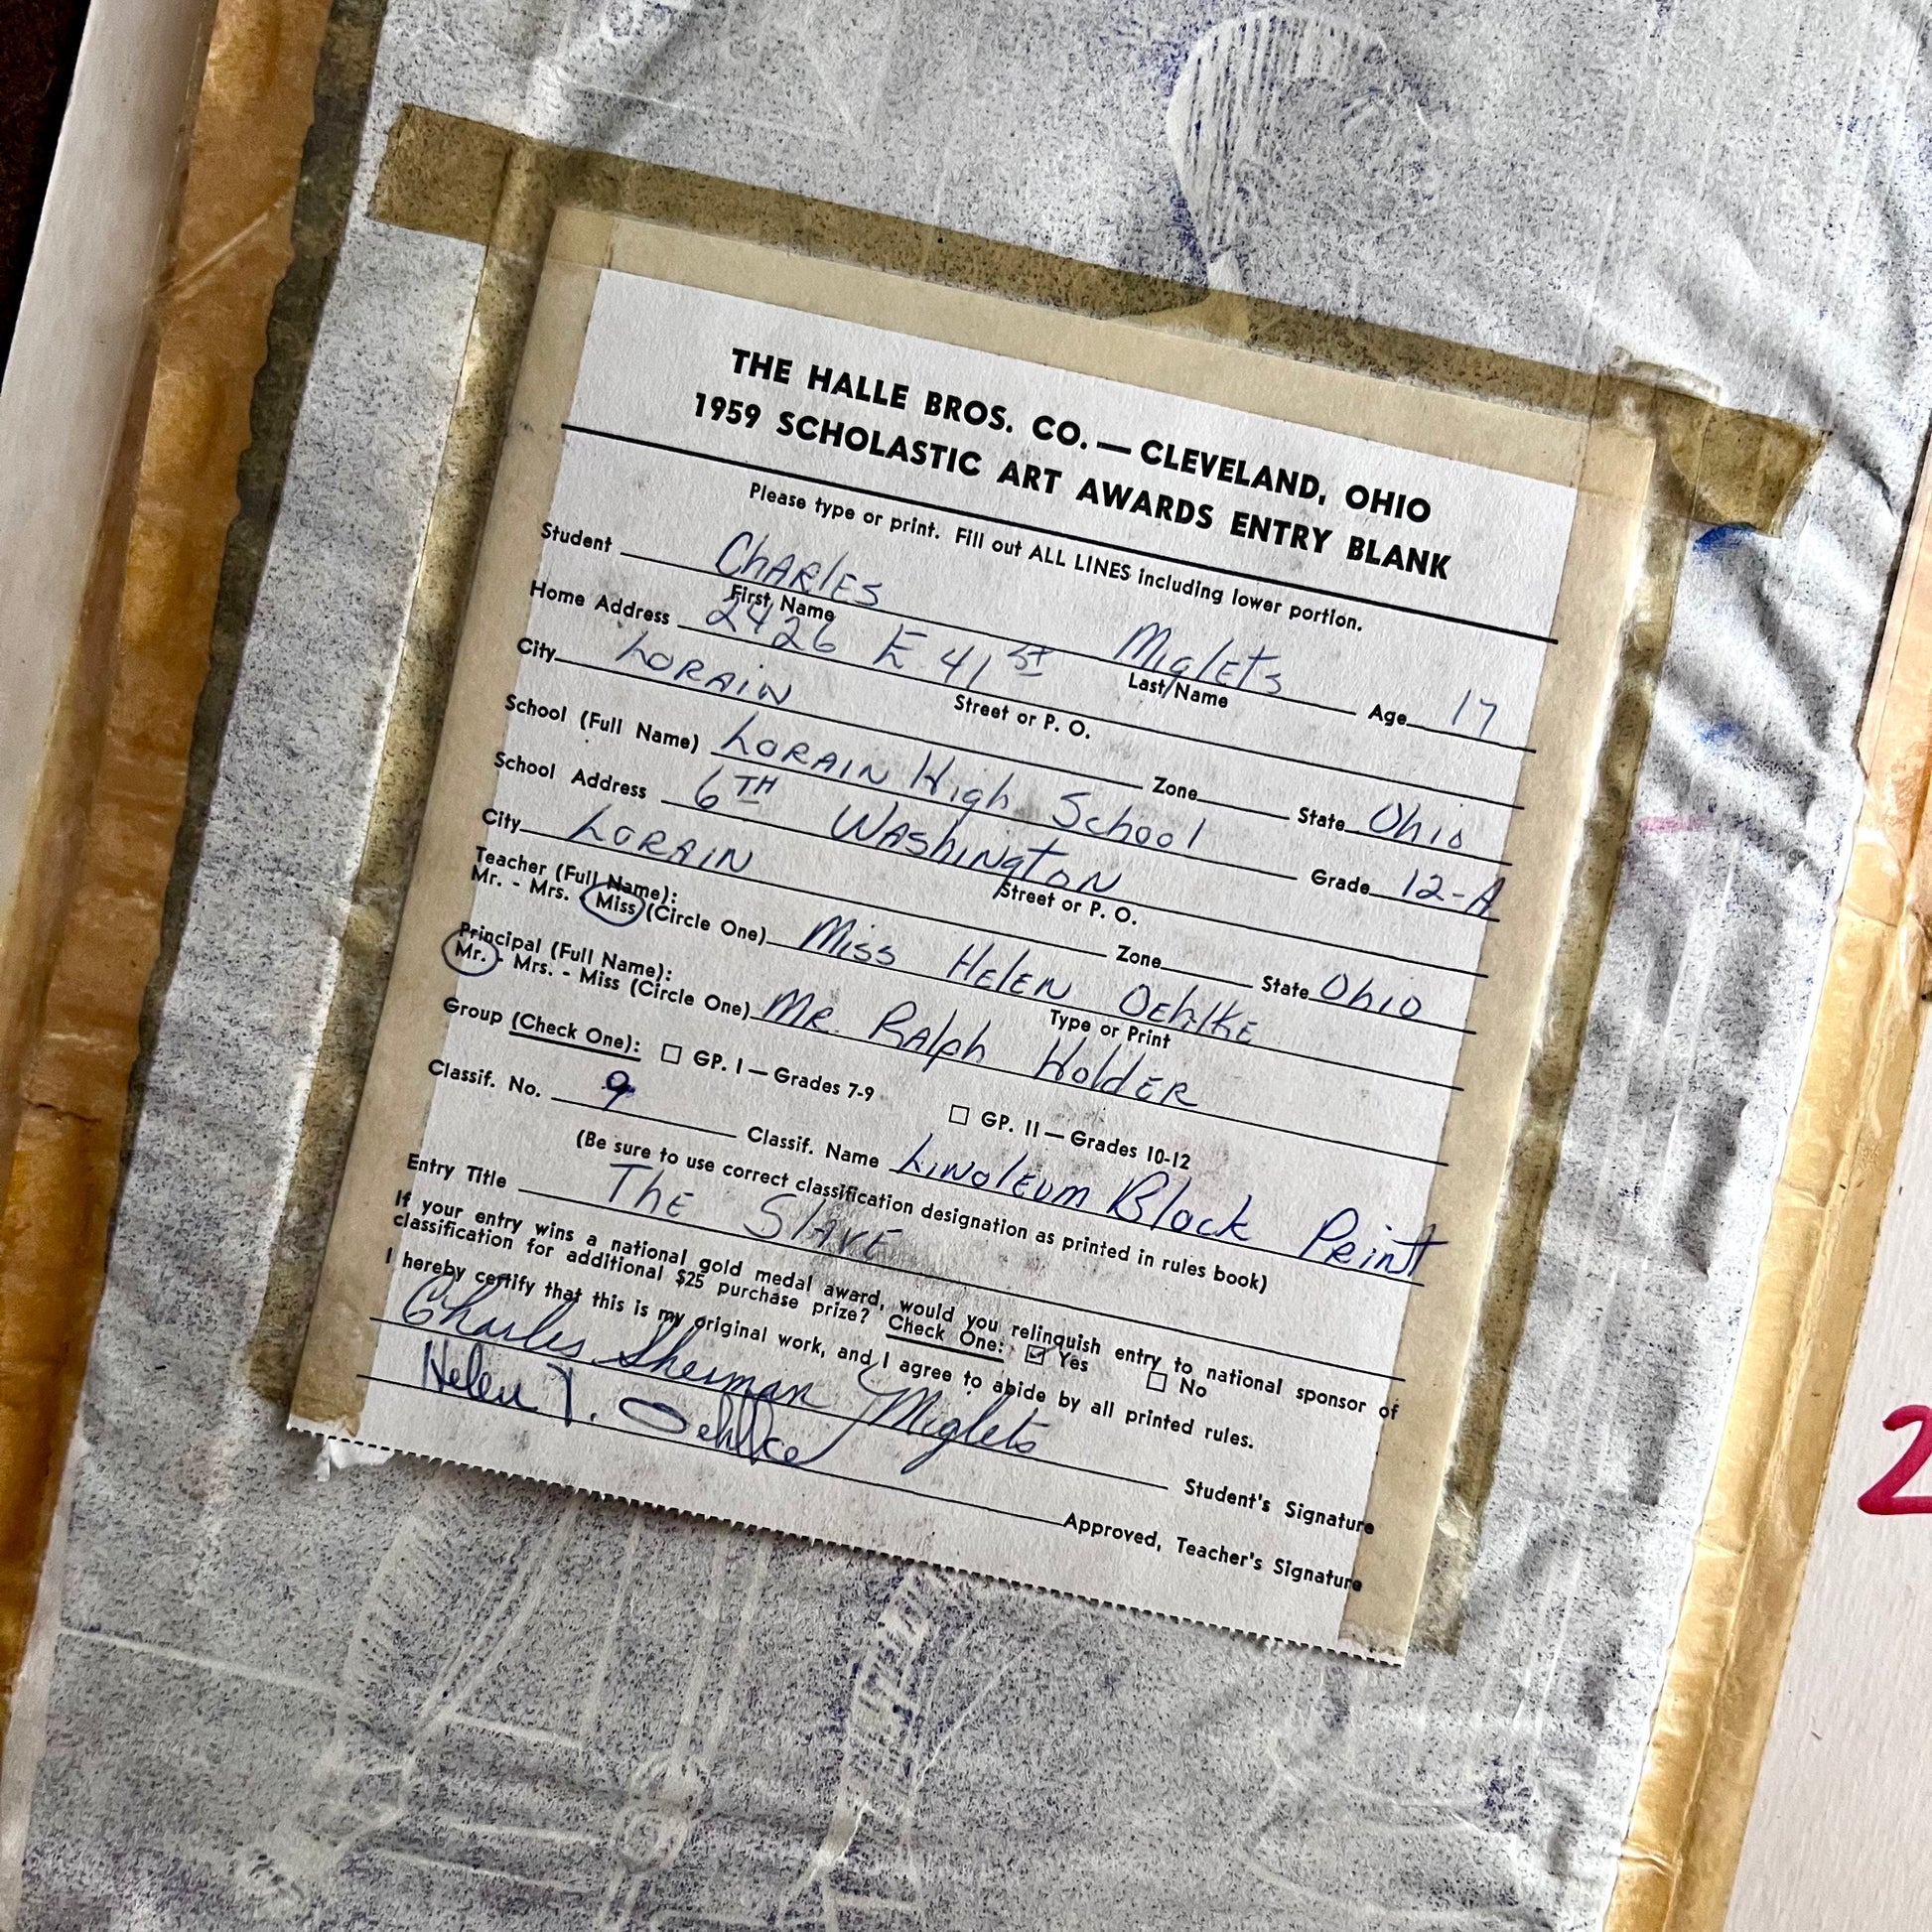 THE HALLE BROS. CO. — CLEVELAND, OHIO
1959 SCHOLASTIC ART AWARDS ENTRY BLANK
Please type or print. Fill out ALL LINES including lower portion.
Student Charles Miglets Age 17
First Name Last Name
Home Address 2426 E. 41st
Street or P. O.
City Lorain Zone State Ohio
School (Full Name) Lorain High School Grade 12-A
School Address 6TH Washington
Street or P. O.
City Lorain Zone State Ohio
Teacher (Full Name):
Mr. - Mrs. Miss (Circle One) Miss Helen Oehlke
Type or Print
Principal (Full Name):
Mr. - Mrs. - Miss (Circle One) Mr. Ralph Holder
Group (Check One): ☐ GP. I — Grades 7-9 ☐ GP. II — Grades 10-12
Classif. No. 9 Classif. Name Linoleum Block Print
(Be sure to use correct classification designation as printed in rules book)
Entry Title The Slave
If your entry wins a national gold medal award, would you relinquish entry to national sponsor of
classification for additional $25 purchase prize? Check One: ☑ Yes ☐ No
I hereby certify that this is my original work, and I agree to abide by all printed rules.
Charles Sherman Miglets Student's Signature
Helen Y. Oehlke Approved, Teacher's Signature
2